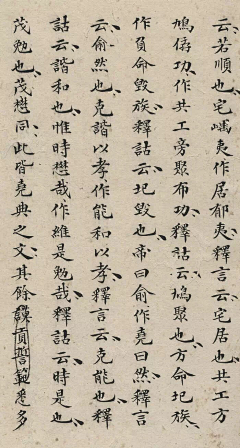 云若順也宅嵎夷作居郁夷釋言云宅居也共工方
鳩僝功作共工旁聚布功釋詁云鳩聚也方命圮族
作負命毀族釋詁云圮毀也帝曰俞作堯曰然釋言
云俞然也克諧以孝作能和以孝釋言云克能也釋
詁云諧和也惟時懋哉作維是勉哉釋詁云時是也
茂勉也茂懋同此皆堯典之文其餘貢誓範悉多